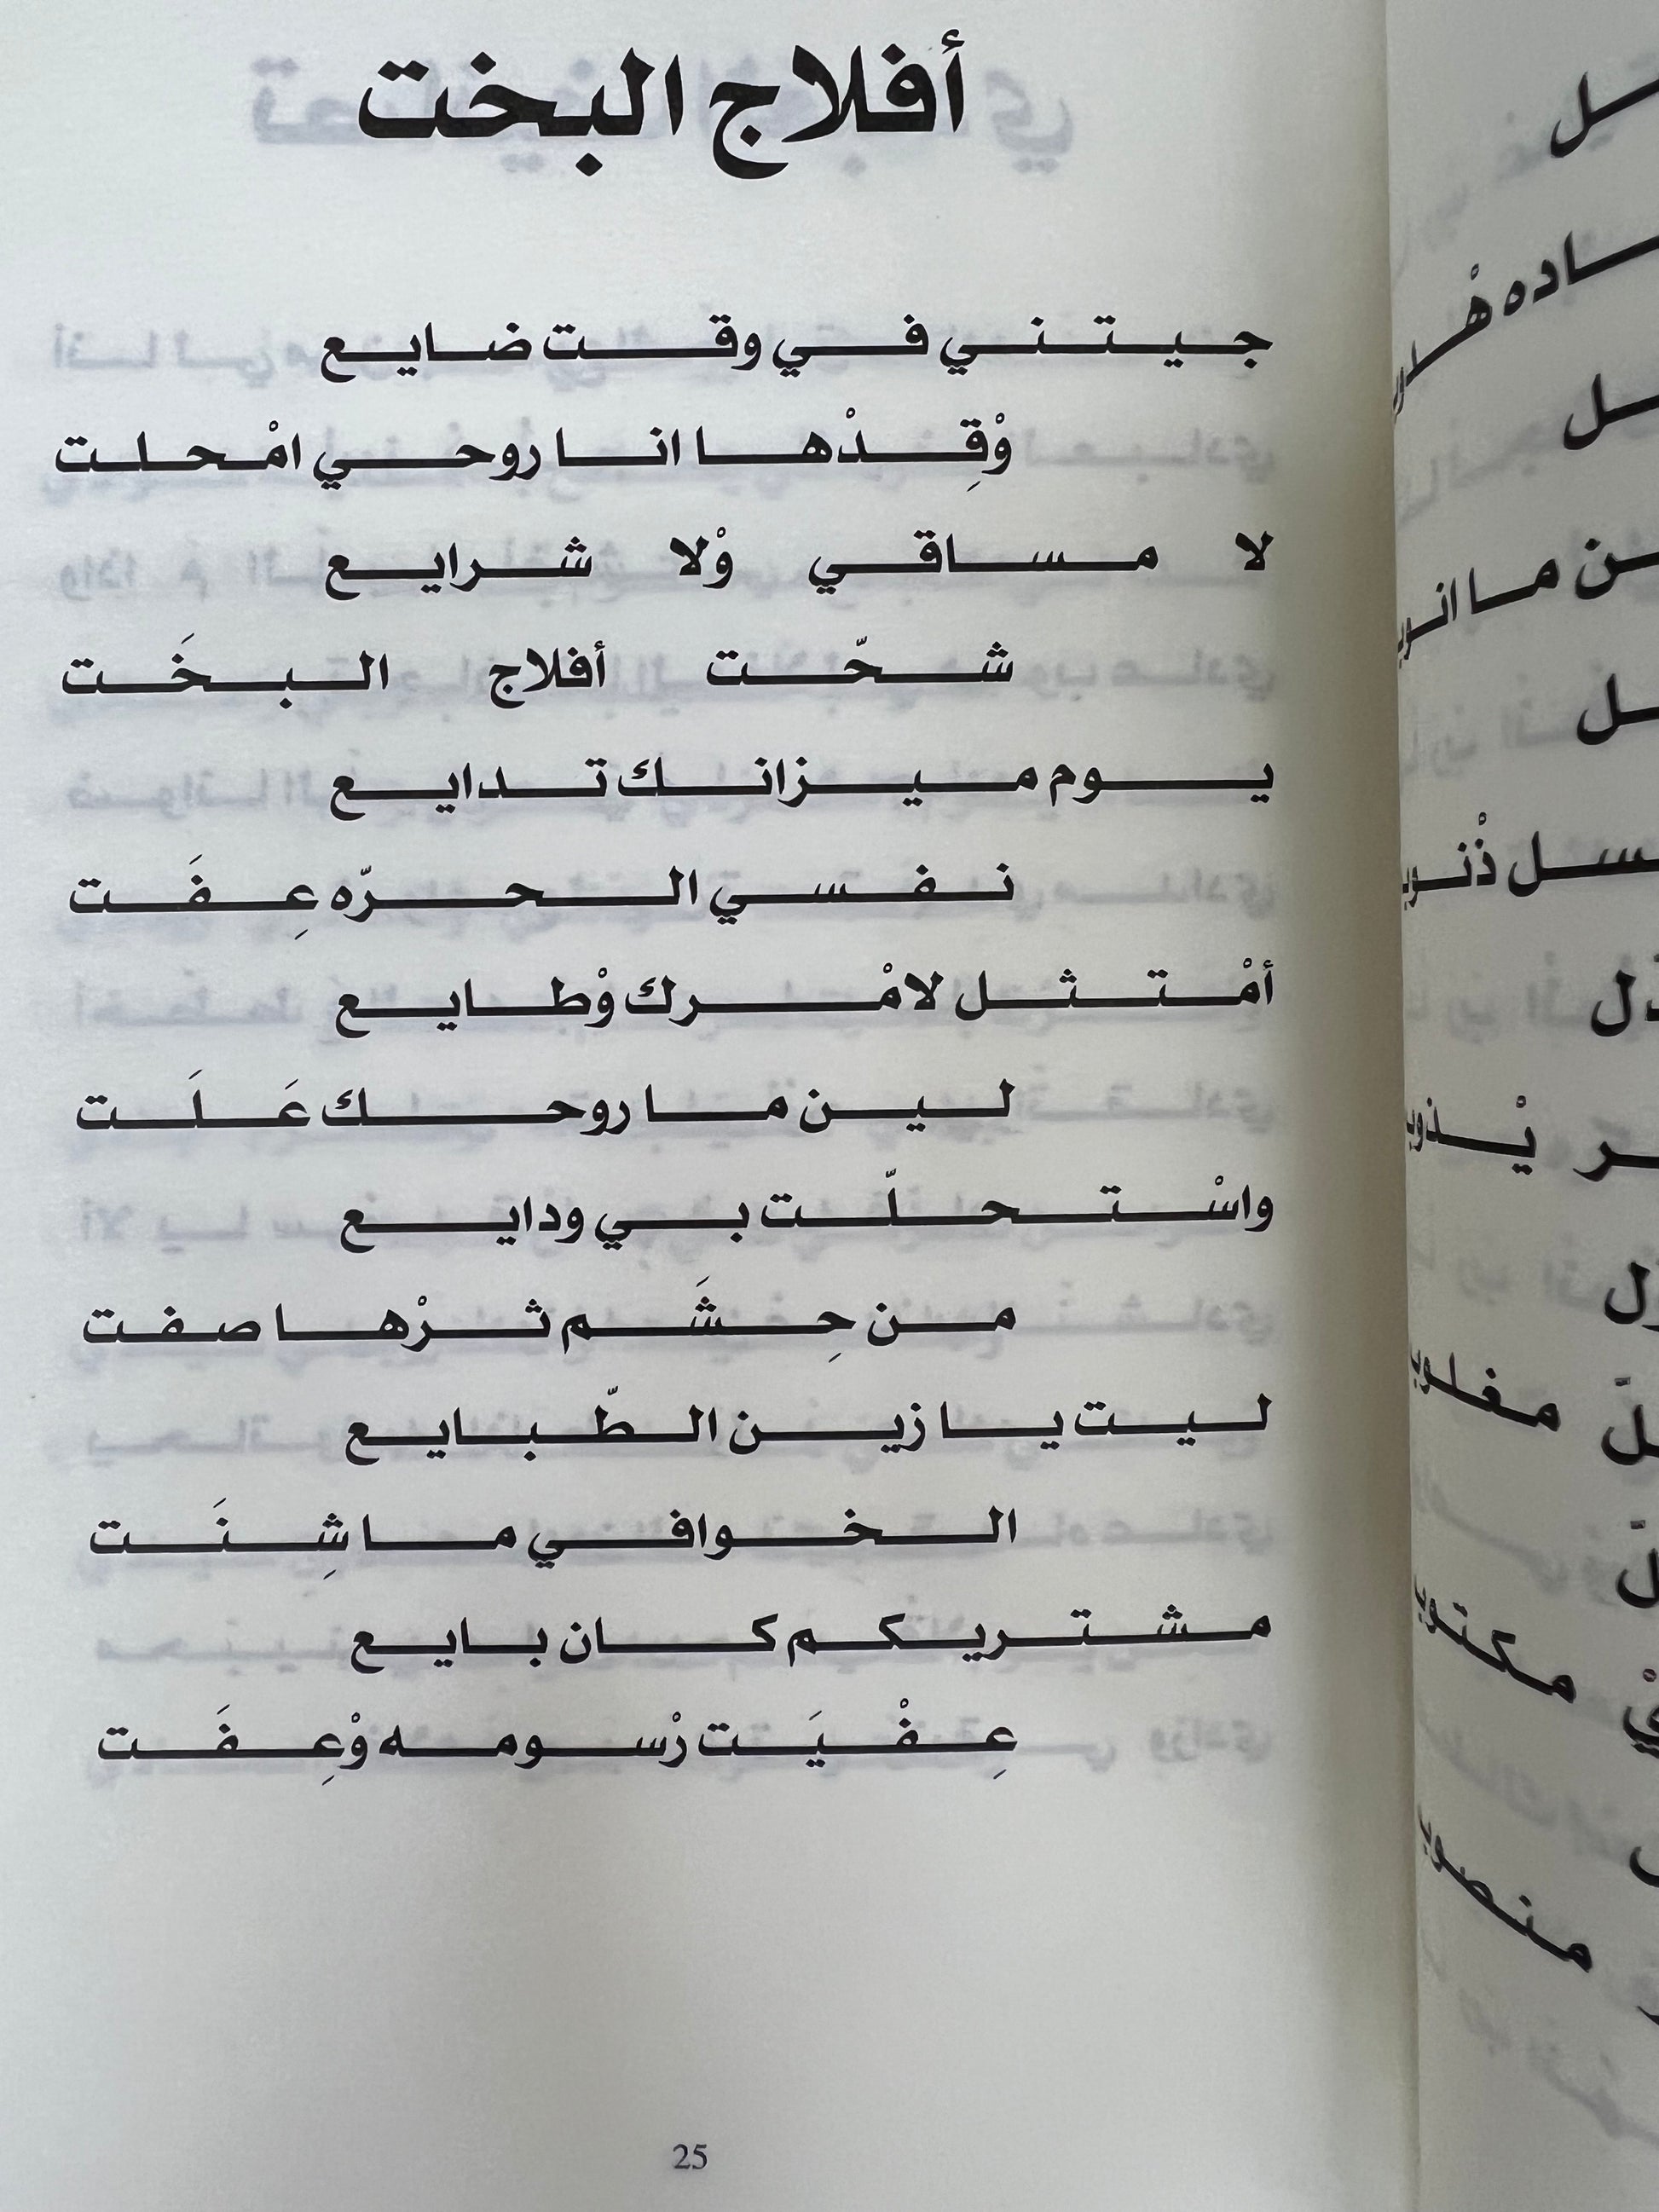 أفلاج البخت
جيتني في وقت ضايع
وْقِدْها انا روحي امْحلت
لا مساقي وْلا شرايع
شحّت أفلاج البخَت
يوم ميزانك تدايع
نفسي الحرّه عِفَت
أمْتثل لامْرك وْطايع
لين ما روحك عَلَت
واسْتحلّت بي ودايع
من حِشَم ثرْها صفت
ليت يا زين الطّبايع
الخوافي ما شِنَت
مشتريكم كان بايع
عِفْيَت رْسومه وْعِفَت
25